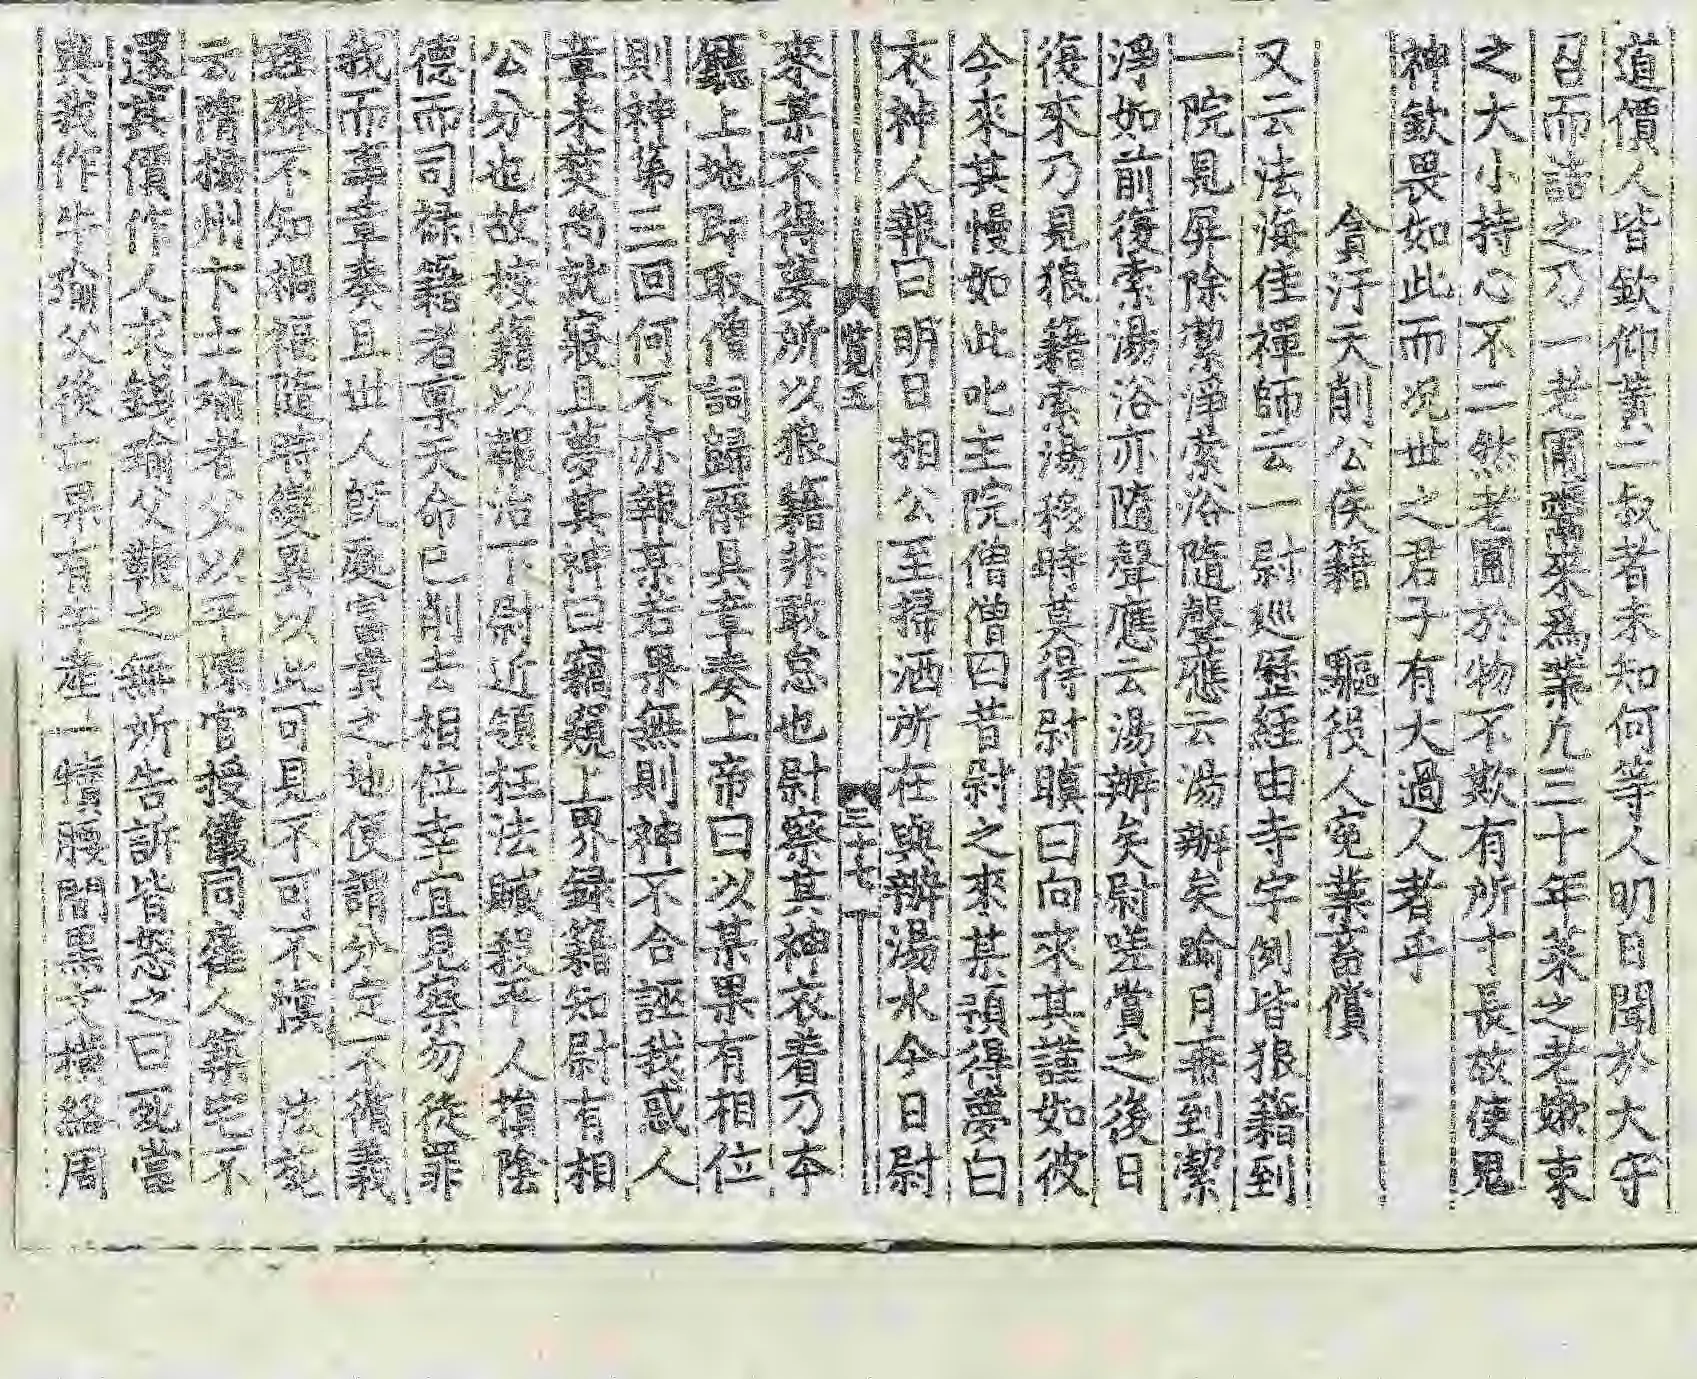 道價人皆欽仰黃二叔者未知何等人明日聞於大守
召而詰之乃一老圃鬻菜爲業凡三十年菜之老嫰束
之大小持心不二然老圃於物不欺有所寸長故使鬼
神欽畏如此而况世之君子有大過人者乎
貪汙天削公侯籍　驅役人寃業畜償
又云法海佳禪師云一尉巡歷経由寺宇倒皆狼籍到
一院見屏除潔淨索浴隨聲應云湯辦矣踰月再到潔
淨如前復索湯浴亦隨聲應云湯辦矣尉嗟賞之後日
復來乃見狼籍索湯移時莫得尉嗔曰向來其謹如彼
今來其慢如此叱主院僧僧曰昔尉之來某預得夢白
衣神人報曰明日相公至掃洒所在與辦湯水今日尉
覽五
三十七
來某不得夢所以狼籍非敢怠也尉察其神衣着乃本
廳上地即取僧詞歸廨具章奏上帝曰以某果有相位
則神第三回何不亦報某若果無則神不合誣我惑人
章未焚尚就寢且夢其神曰竊窺上界錄籍知尉有相
公分也故按籍以報治下尉近領枉法贓殺平人損陰
德而司祿籍者稟天命已削去相位幸宜見察勿從罪
我而寢章奏且世人旣處富貴之地便謂分定不循義
理殊不知禍福隨時變異以此可見不可不慎　法苑
云隋楊州卞士瑜者父以平陳官授儀同雇人築宅不
還其價作人求錢瑜父鞭之無所告訴皆怒之曰死當
與我作牛瑜父後亡果有牛產一犢腰間黑文橫絡周